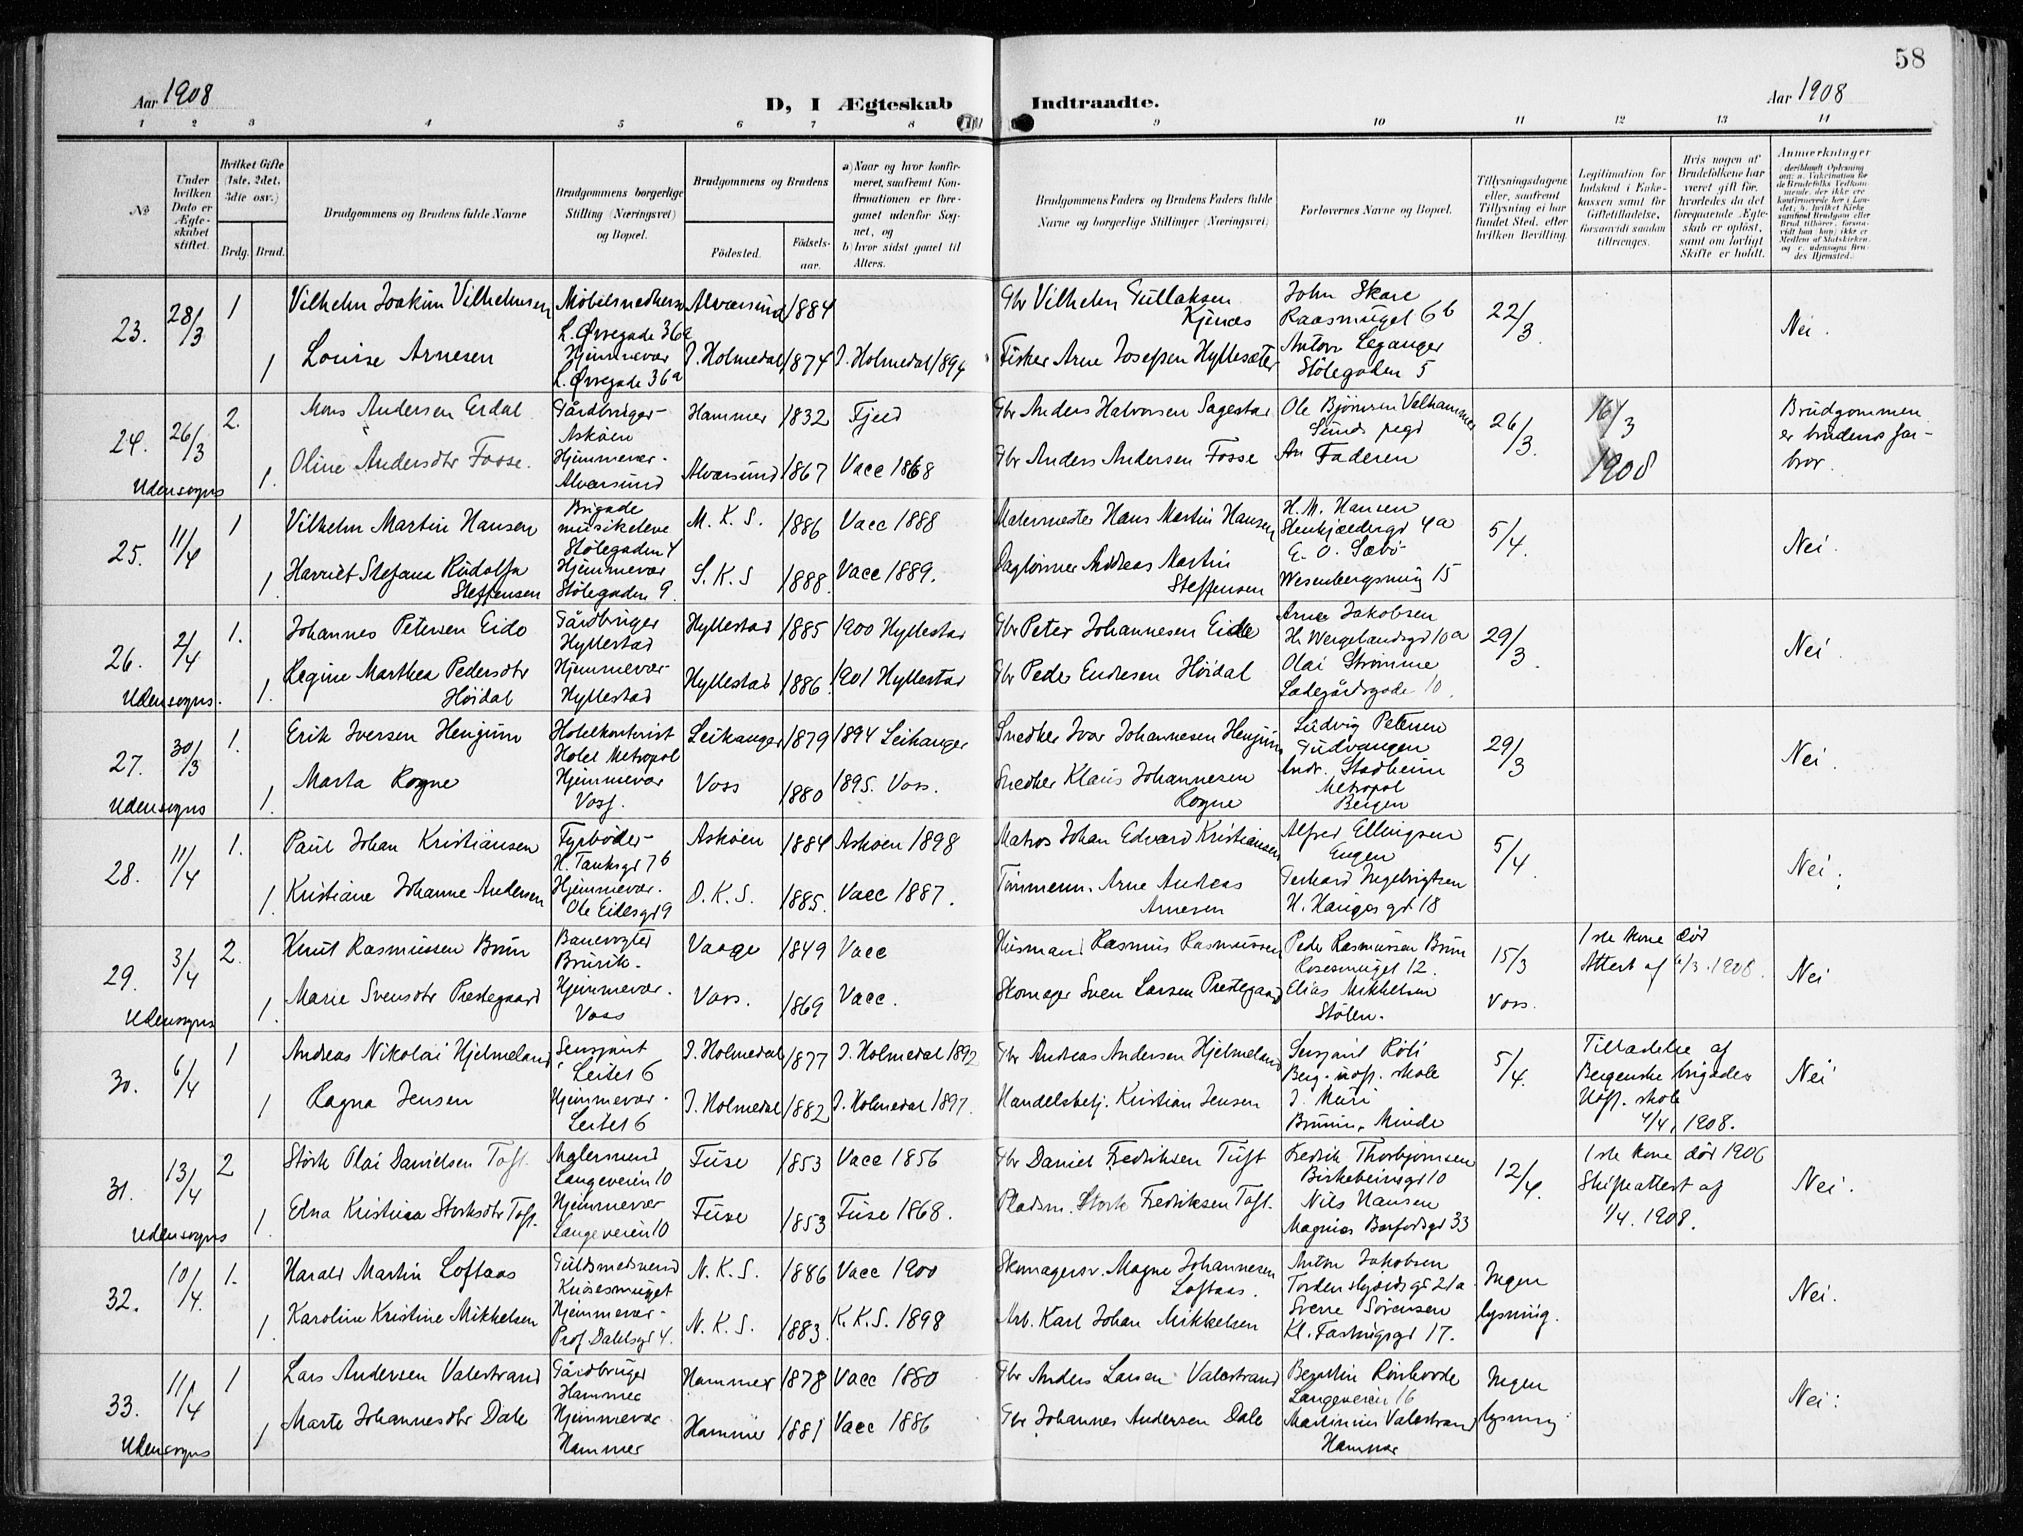 58
Aar 1908
D, I Ægteskab Indtraadte.
Aar 1908
1 2 3 4 5 6 7 8 9 10 11 12 13 14
No
Under hvilken Dato er Ægteskabet stiftet.
Hvilket Gifte (1ste, 2det, 3die osv.)
Brdg. Brud.
Brudgommens og Brudens fulde Navne
Brudgommens borgerlige Stilling (Næringsvei) og Bopæl.
Brudgommens og Brudens
Födested. Födsels-aar.
a) Naar og hvor konfirmeret, saafremt Konfirmationen er foregaaet udenfor Sognet, og
b) hvor sidst gaaet til Alters.
Brudgommens Faders og Brudens Faders fulde Navne og borgerlige Stillinger (Næringsvei)
Forlovernes Navne og Bopæl.
Tillysningsdagene eller, saafremt Tillysning ei har fundet Sted, efter hvilken Bevilling.
Legitimation for Indskud i Enkekassen samt for Giftetilladelse, forsaavidt saadan tiltrænges.
Hvis nogen af Brudefolkene har været gift för, hvorledes da det foregaaende Ægteskab er oplöst, samt om lovligt Skifte er holdt.
Anmærkninger
23. 28/3 1 Vilhelm Joakim Vilhelmsen Möbelsnedkersv L. Øvregade 36a Alversund 1884 Gbr Vilhelm Gullaksen Kjenes John Skare Raasmuget 6b 22/3 Nei.
1 Louise Arnesen Hjemmevær L. Øvregade 36a I. Holmedal 1874 I. Holmedal 1894 Fisker Arne Josefsen Hyllesæter Anton Leganger Stölegaden 5
24. 26/3 2. Mons Andersen Erdal Gårdbruger Asköen Hammer 1832 Fjeld Gbr Anders Halvorsen Sagestad Ole Björnsen Valhammer Sunds pegd 26/3. 16/3 1908 Brudgommen er brudens farbror.
Udensogns 1. Oline Andersdtr Fosse. Hjemmevær. Alversund Alversund 1867 Vacc 1868 Gbr Anders Andersen Fosse Faderen
25. 11/4 1 Vilhelm Martin Hansen Brigade musikelev Stölegaden 4 M. K. S. 1886 Vacc 1888 Malermester Hans Martin Hansen H. M. Hansen Stenkjeldersgd 4a 5/4. Nei.
1. Harriet Stefane Rudolfa Steffensen Hjemmevær Stölegaden 9. S. K. S 1888. Vacc 1889. Daglönner Andreas Martin Steffensen E. O. Sæbö Wesenbergsmug 15
26. 2/4 1. Johannes Petersen Eide Gårdbruger Hyllestad Hyllestad 1885 1900 Hyllestad Gbr Peter Johannesen Eide Arne Jakobsen H. Wergelandsgd 10a 29/3. Nei
Udensogns. 1. Regine Marthea Pedersdtr Höidal Hjemmevær Hyllestad Hyllestad 1886. 1901 Hyllestad Gbr Peder Endresen Höidal Olai Strömme Ladegårdsgade 10.
27. 30/3 1. Erik Iversen Henjum Hotelkontorist Hotel Metropol Leikanger 1879 1894 Leikanger Snedker Ivar Johannesen Henjum Ludvig Petersen Gudvangen 29/3 Nei.
Udensogns 1. Marta Rogne Hjemmevær Voss. Voss 1880 1895. Voss. Snedker Klaus Johannesen Rogne Andr. Stadheim Metropol Bergen
28. 11/4 1. Paul Johan Kristiansen Fyrböder H. Tanksgd 7b Asköen 1884 Asköen 1898 Matros Johan Edvard Kristiansen Alfred Ellingsen Engen 5/4. Nei.
1. Kristiane Johanne Andersen Hjemmevær. Ole Eidesgd 9 D. K. S. 1885. Vacc 1887. Tömmerm. Arne Andreas Arnesen Gerhard Ingebrigtsen H. Hauges gd. 18
29. 3/4 2. Knut Rasmussen Brun Banevogter Brusvik. Vaage 1849 Vacc Husmand Rasmus Rasmussen Peder Rasmussen Brun Rosesmuget 12. 15/3 Voss. 1ste kone död Attest af 4/3. 1908. Nei
Udensogns 1. Marie Svensdtr Prestegaard Hjemmevær. Voss Voss. 1869 Vacc. Skomager Sven Larsen Prestegaard Elias Mikkelsen Stölen.
30. 6/4 1 Andreas Nikolai Hjelmeland Sersjant Leitet 6 I. Holmedal 1877 I. Holmedal 1892 Gbr Andreas Andersen Hjelmeland Sersjant Röli Berg. uof. skole 5/4. Tilladelse af Bergenske brigades Uof. skole 4/4. 1908. Nei
1 Ragna Jensen Hjemmevær. Leitet 6 I. Holmedal 1882 I. Holmedal 1897. Handelsbetj. Kristian Jensen J. Muri Brunn, Minde
31. 13/4 2 Störk Olai Danielsen Toft Malersvend Langeveien 10 Fuse 1853 Vacc 1856 Gbr Daniel Fredriksen Tuft Fredrik Thorbjörnsen Birkebeinsgd 10 12/4. 1ste kone död 1906 Skifteattest af 1/4. 1908. Nei.
Udensogns 1. Edna Kristina Storksdtr Toft. Hjemmevær Langeveien 10 Fuse 1853 Fuse 1868. Pladsm. Störk Fredriksen Toft. Nils Hansen Magnus Barfodsgd 33
32. 10/4. 1. Harald Martin Loftaas Guldsmedsvend Krösesmuget N. K. S. 1886 Vacc 1900 Skomagersv. Magne Johannesen Loftaas. Anton Jakobsen Tordenskjoldsgd 21a Ingen lysning. Nei.
1. Karoline Kristine Mikkelsen Hjemmevær Prof Dahlsgd 4. N. K. S. 1883. K. K. S. 1898 Arb. Karl Johan Mikkelsen Sverre Sörensen Kl. Fastingsgd 17.
33. 11/4 1 Lars Andersen Valestrand Gårdbruger Hammer Hammer 1878 Vacc 1880 Gbr Anders Larsen Valestrand Langeveien 16 Ingen lysning Nei.
Udensogns 1 Marte Johannesdtr Dale Hjemmevær Hammer Hammer 1881 Vacc 1886 Gbr Johannes Andersen Dale Martinius Valestrand Hammer